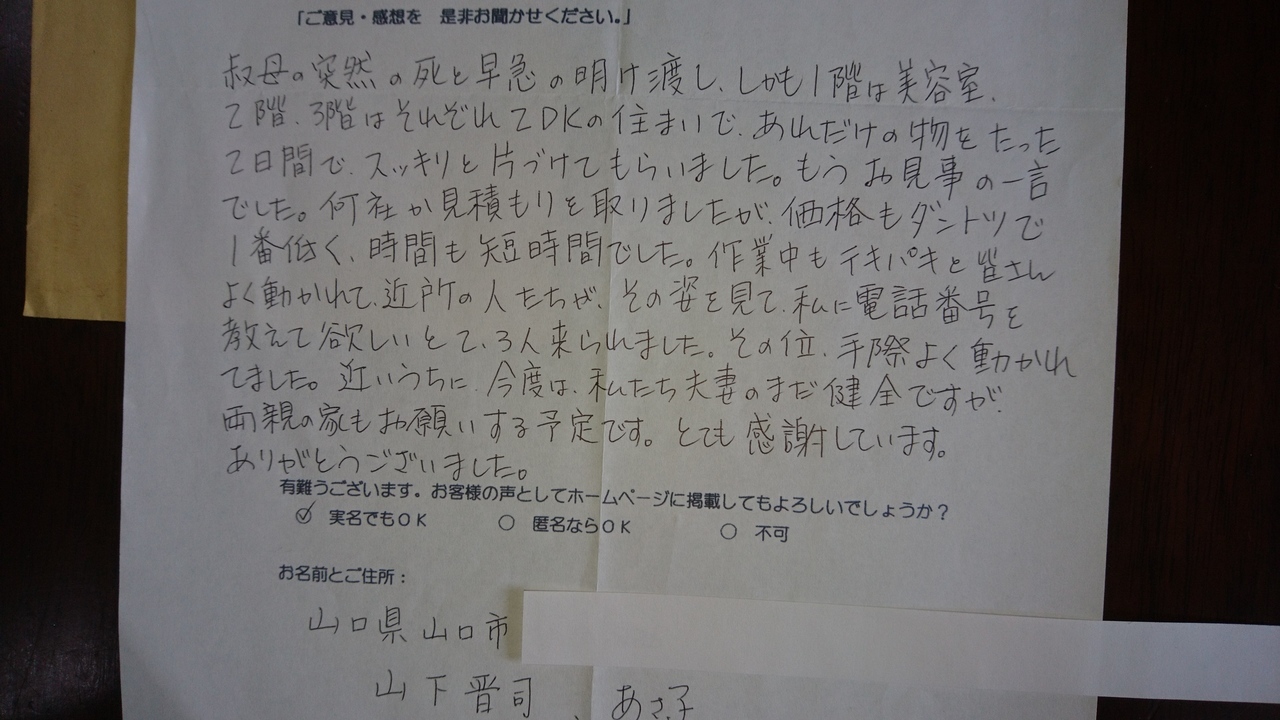 「ご意見・感想を 是非お聞かせください。」
叔母の突然の死と早急の明け渡し、しかも1階は美容室、
2階、3階はそれぞれ2DKの住まいで、あれだけの物をたった
2日間で、スッキリと片づけてもらいました。もうお見事の一言
でした。何社か見積もりを取りましたが、価格もダントツで
1番低く、時間も短時間でした。作業中もテキパキと皆さん
よく動かれて、近所の人たちが、その姿を見て、私に電話番号を
教えて欲しいとて、3人来られました。その位、手際よく動かれ
てました。近いうちに、今度は、私たち夫妻のまだ健全ですが、
両親の家もお願いする予定です。とても感謝しています。
ありがとうございました。
有難うございます。お客様の声としてホームページに掲載してもよろしいでしょうか？
実名でもOK 匿名ならOK 不可
お名前とご住所：
山口県山口市
山下晋司
、あさ子